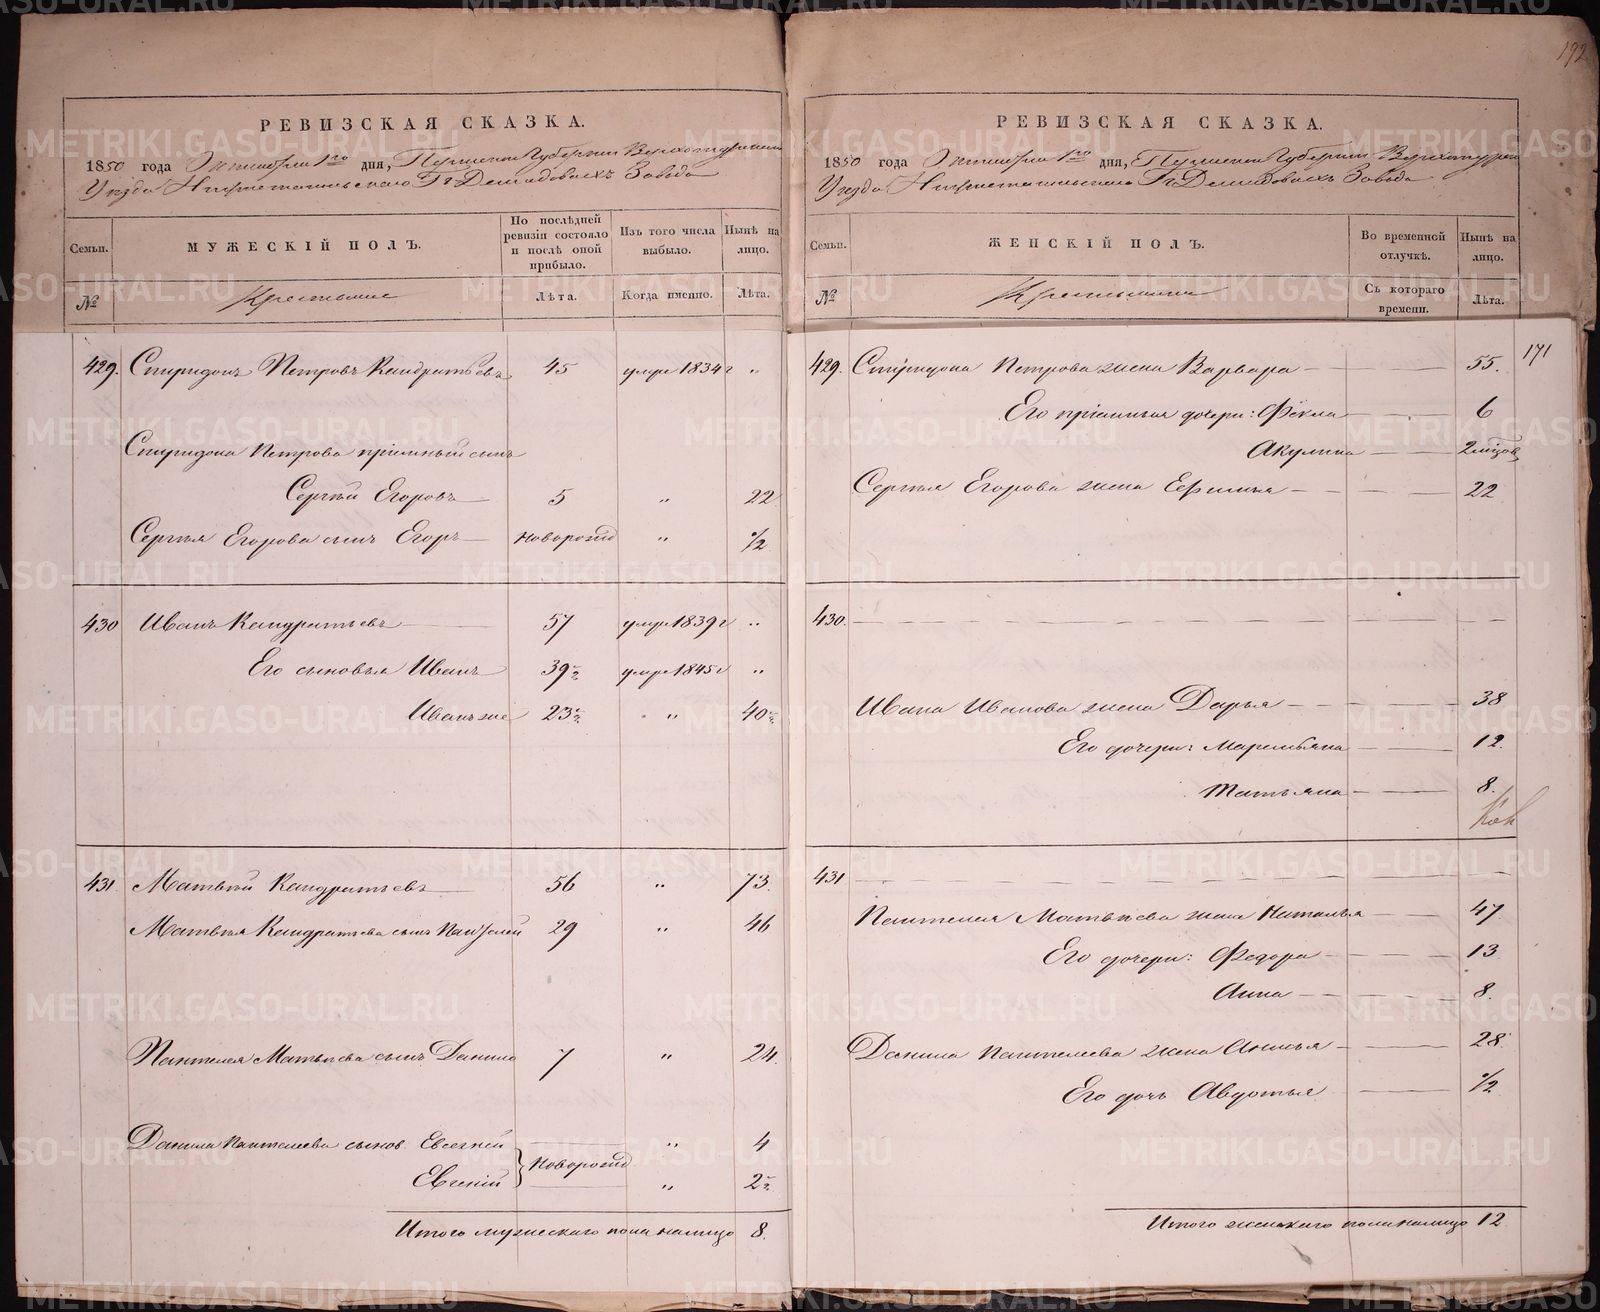 192
РЕВИЗСКАЯ СКАЗКА.
1850 года Октября 1го дня, Пермской Губернии Верхотурскаго
Уезда Нижнетагильскаго Гг. Демидовыхъ Завода
Семьи.
МУЖЕСКІЙ ПОЛЪ.
По послѣдней ревизіи состояло и послѣ оной прибыло.
Изъ того числа выбыло.
Нынѣ на лицо.
№
Крестьяне
Лѣта.
Когда именно.
Лѣта.
429. Спиридонъ Петровъ Кандратьевъ 45 умре 1834 г „
Спиридона Петрова пріемный сынъ
Сергѣй Егоровъ 5 „ 22
Сергѣя Егорова сынъ Егоръ новорожд „ 1/2
430 Иванъ Кандратьевъ 57 умре 1839 г „
Его сыновья Иванъ 39 умре 1845 г „
Иванъ же 23 „ 40
431 Матвѣй Кандратьевъ 56 „ 73.
Матвѣя Кандратьева сынъ Пантелей 29 „ 46
Пантелея Матвѣева сынъ Данило 7 „ 24.
Данила Пантелеева сынов. Евсегней „ 4
новорожд
Евгеній „ 2
Итого мужескаго пола налицо 8.
РЕВИЗСКАЯ СКАЗКА.
1850 года Октября 1го дня, Пермской Губерніи Верхотурскаго
Уезда Нижнетагильскаго Гг. Демидовыхъ Завода
Семьи.
ЖЕНСКІЙ ПОЛЪ.
Во временной отлучкѣ.
Нынѣ на лицо.
№
Крестьяне
Съ котораго времени.
Лѣта.
171
429. Спиридона Петрова жена Варвара 55.
Его пріемныя дочери: Фекла 6
Акулина 2 мѣсяцов
Сергѣя Егорова жена Ефимья 22
430.
Ивана Иванова жена Дарья 38
Его дочери: Маремьяна 12.
Татьяна 8.
431
Пантелея Матвѣева жена Наталья 47
Его дочери: Федора 13
Анна 8.
Данила Пантелеева жена Анисья 28
Его дочь Авдотья 1/2
Итого женскаго пола налицо 12
METRIKI.GASO-URAL.RU